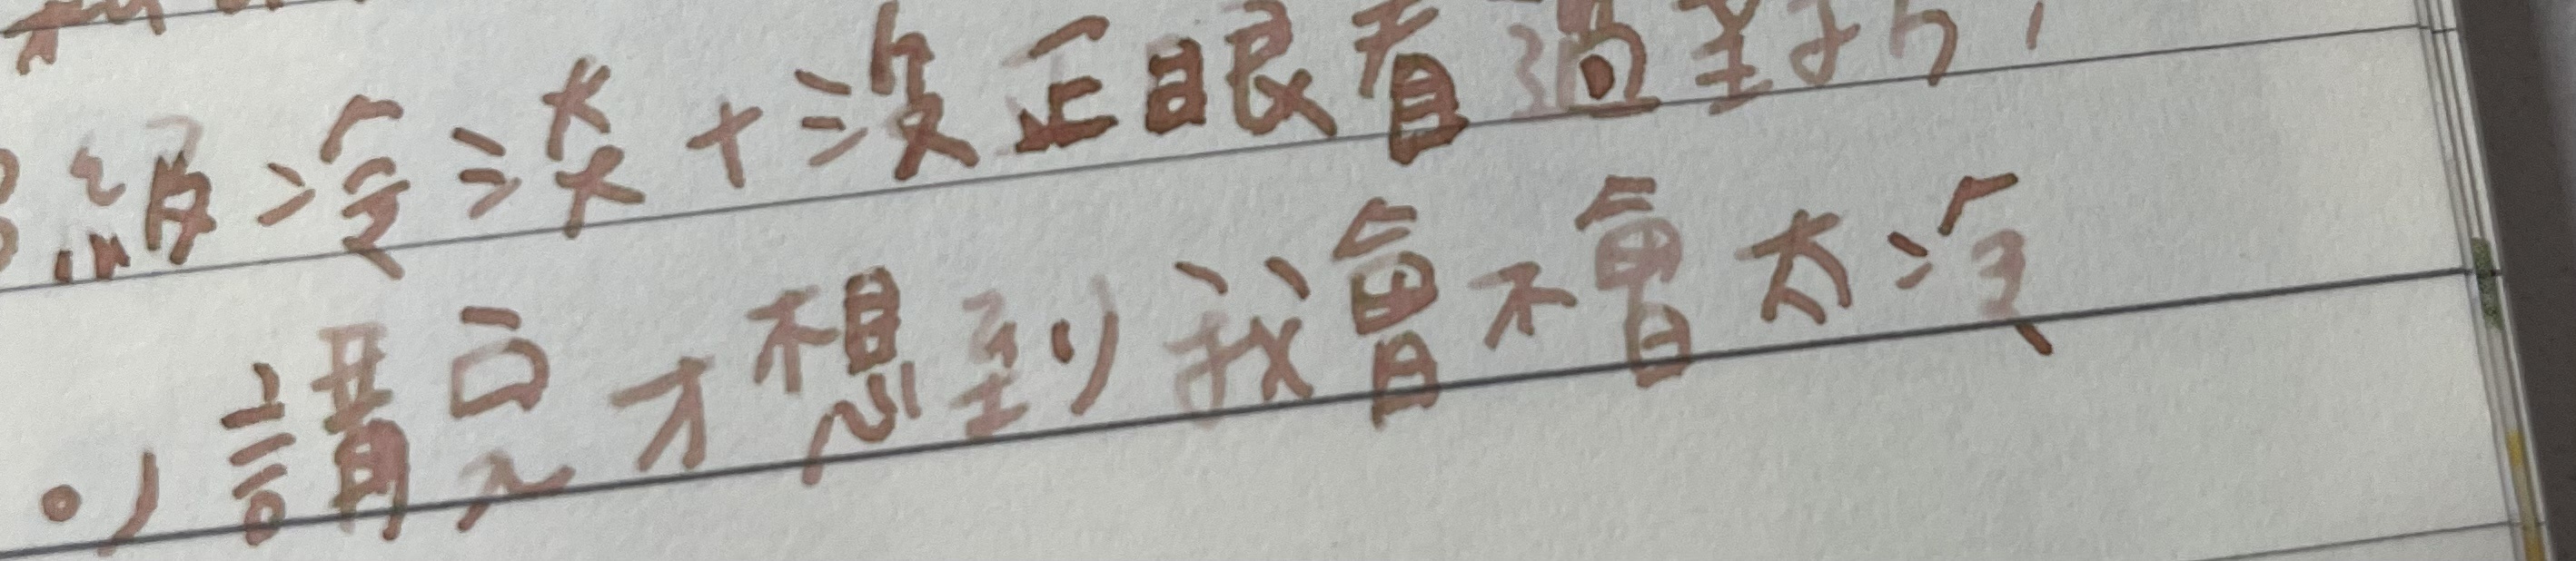 級冷淡+沒正眼看過對方,
。)講完才想到我會不會太冷